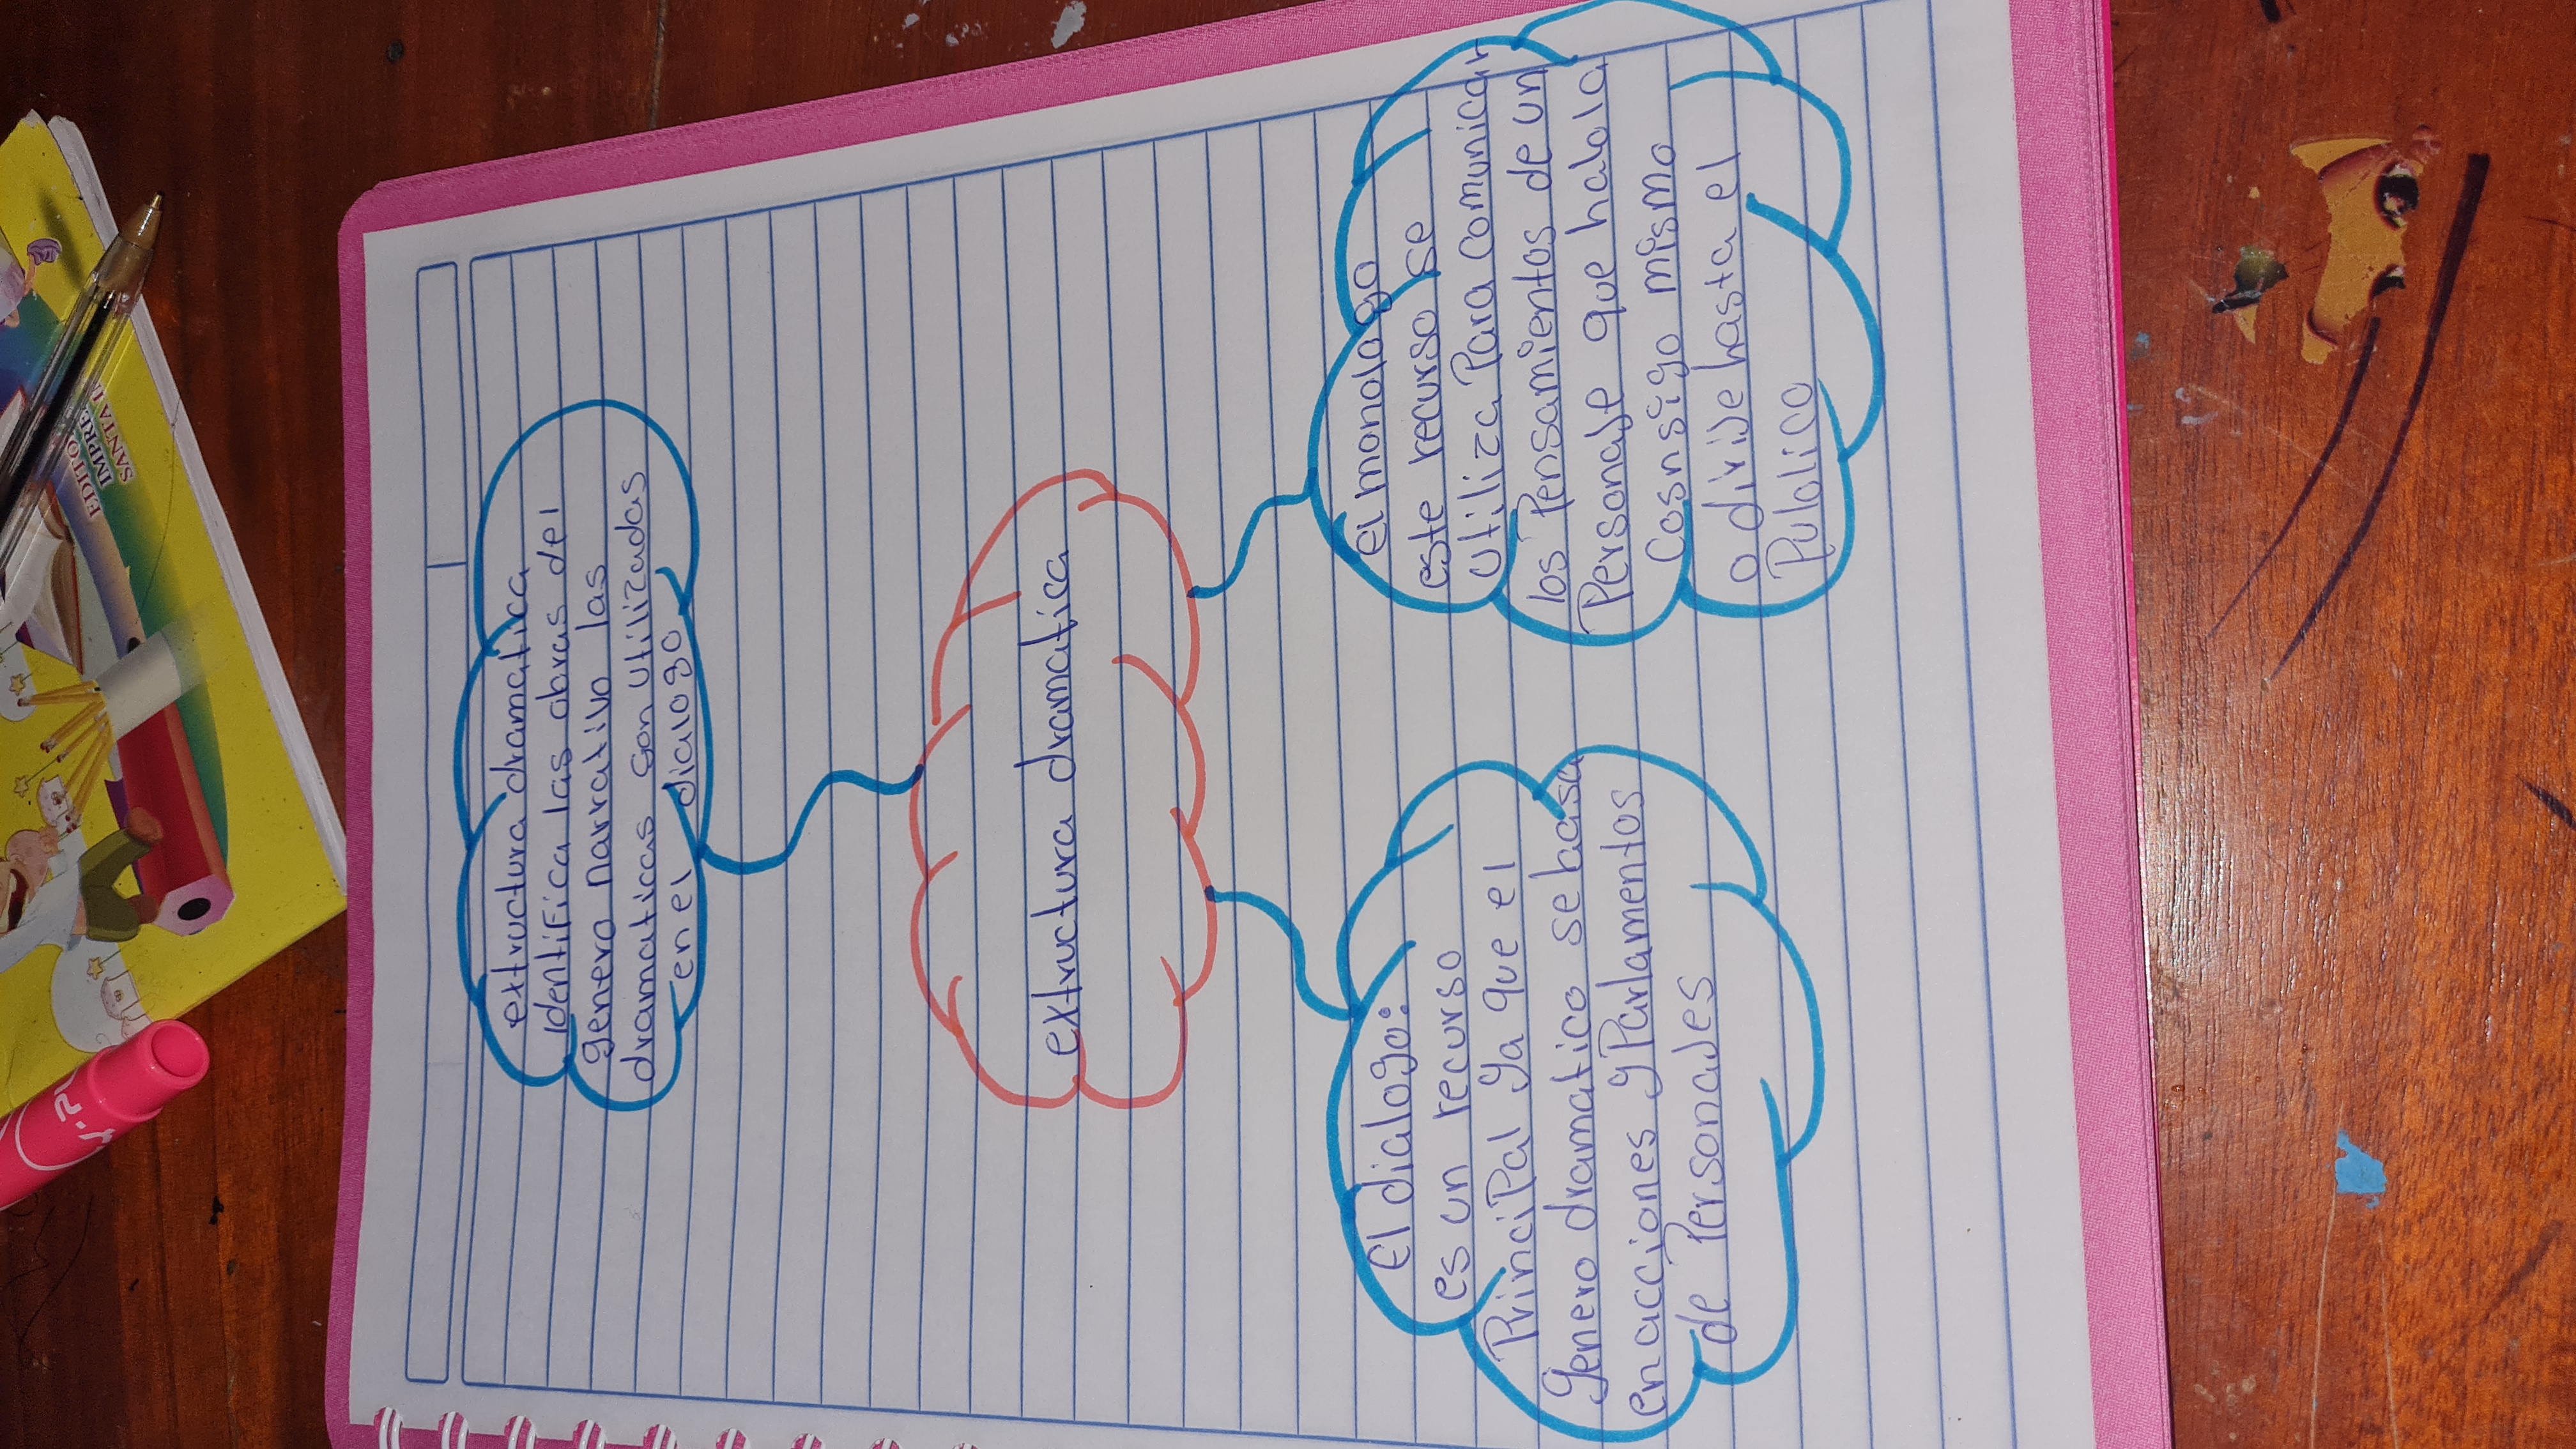 extructura dramatica
identifica las obras del
genero narrativo las
dramaticas son utilizadas
en el dialogo
extructura dramatica
El dialogo:
es un recurso
Principal ya que el
genero dramatico se basa
en acciones y Parlamentos
de Personajes
El monologo
este recurso se
utiliza Para comunicar
los Pensamientos de un
Personaje que habla
cosnsigo mismo
o dirije hasta el
Publico
EDITO
IMPRE
SANTA